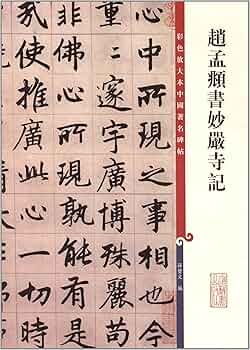 趙孟頫書妙嚴寺記
彩色放大本中國著名碑帖
孫寶文 編
中所現之其相
邃宇廣博殊麗苟
非佛心所現孰能如是
使推廣此心以